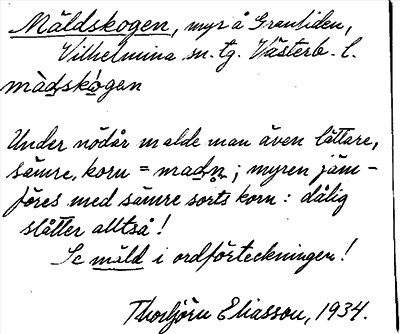 Mäldskogen, myr å Granliden,
Vilhelmina sn. tg. Västerb. l.
mädskógan
Under nödår malde man även lättare,
sämre, korn = madn; myren jäm-
föres med sämre sorts korn: dålig
slåtter alltså!
Se mäld i ordförteckningen!
Thorbjörn Eliasson, 1934.